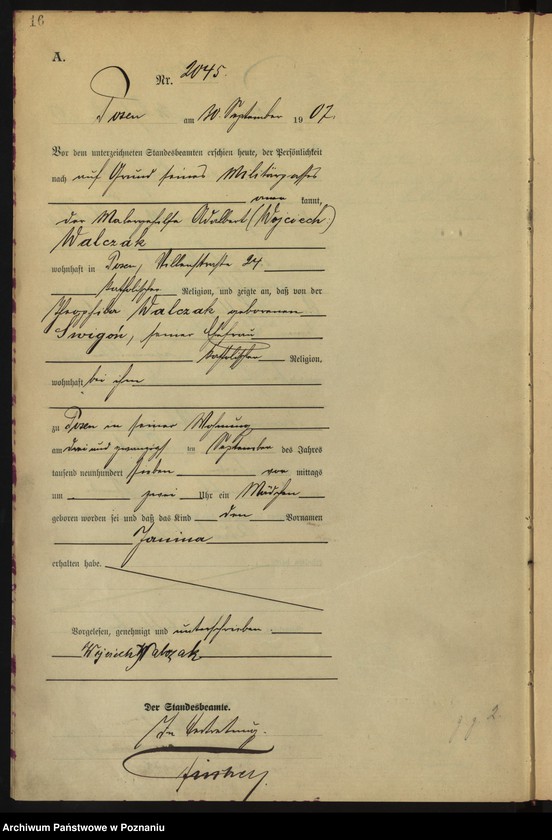 16
A.
Nr. 2045.
Posen am 30. September 1907.
Vor dem unterzeichneten Standesbeamten erschien heute, der Persönlichkeit
nach auf Grund seines Militärpasses
kannt,
der Malergehilfe Adalbert (Wojciech)
Walczak
wohnhaft in Posen, 24
katholischer Religion, und zeigte an, daß von der
Theophila Walczak geborenen
Swigoń, seiner Ehefrau
katholischer Religion,
wohnhaft bei ihm
zu Posen in seiner Wohnung
am drei und zwanzigsten September des Jahres
tausend neunhundert sieben vor mittags
um zwei Uhr ein Mädchen
geboren worden sei und daß das Kind den Vornamen
Janina
erhalten habe.
Vorgelesen, genehmigt und unterschrieben.
Wojciech Walczak
Der Standesbeamte.
In Vertretung.
Archiwum Państwowe w Poznaniu